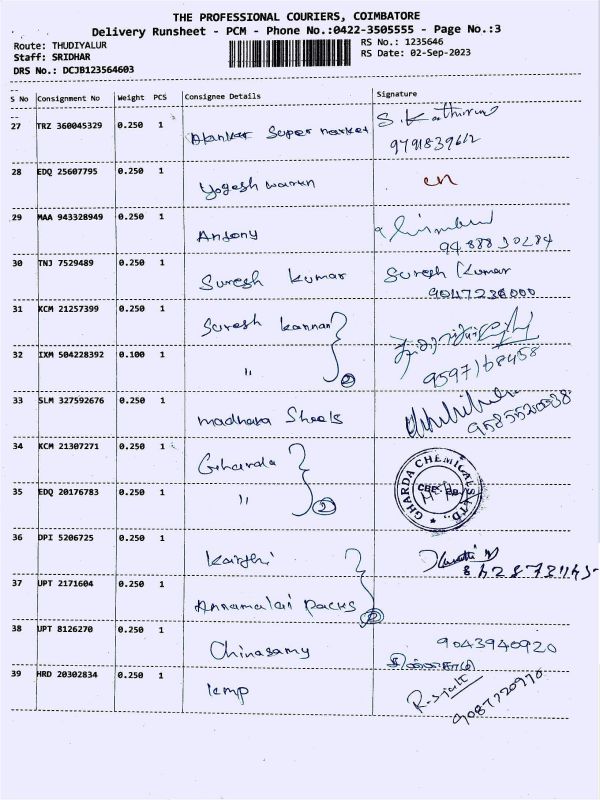 THE PROFESSIONAL COURIERS, COIMBATORE
Delivery Runsheet - PCM - Phone No.:0422-3505555 - Page No.:3
Route: THUDIYALUR
RS No.: 1235646
Staff: SRIDHAR
RS Date: 02-Sep-2023
DRS No.: DCJB123564603
S No Consignment No Weight PCS Consignee Details Signature
27 TRZ 360045329 0.250 1 Super market S. Kathirvan
9791839612
28 EDQ 25607795 0.250 1 Yogesh waran
29 MAA 943328949 0.250 1 Antony
9488830284
30 TNJ 7529489 0.250 1 Suresh kumar Suresh Kumar
9047236000
31 KCM 21257399 0.250 1 Suresh kannan
32 IXM 504228392 0.100 1 " 2
9597168458
33 SLM 327592676 0.250 1 madhara Sheels
9585520038
34 KCM 21307271 0.250 1 Gharda
GHARDA CHEMICALS LTD.,
CBE
35 EDQ 20176783 0.250 1 " 2
36 DPI 5206725 0.250 1
37 UPT 2171604 0.250 1 Annamalai packs 2
38 UPT 8126270 0.250 1 Chinasamy 9043940920
சின்னசாமி
39 HRD 20302834 0.250 1 kmp
9087720970